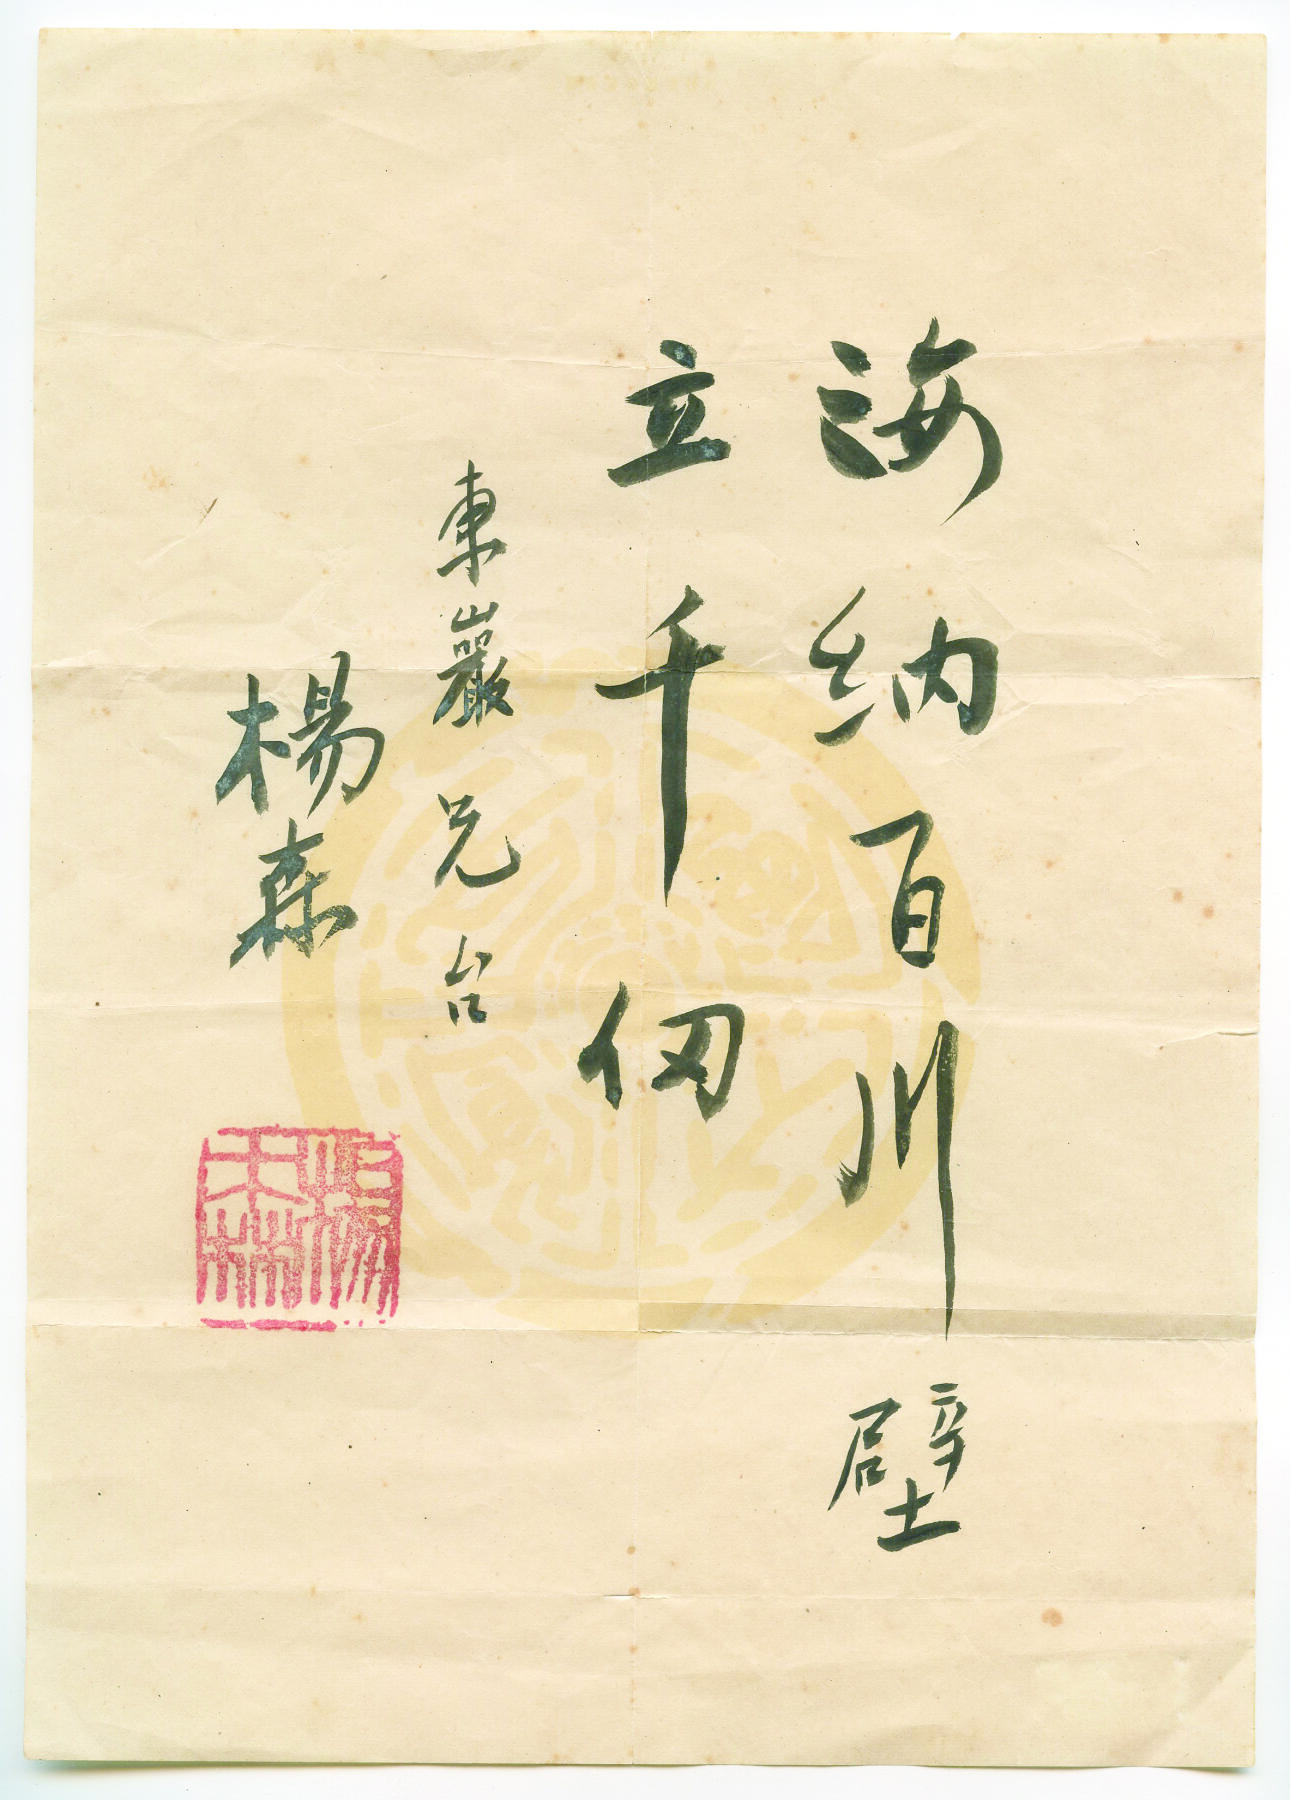 海納百川壁
立千仞
東巖兄台
楊森
楊森